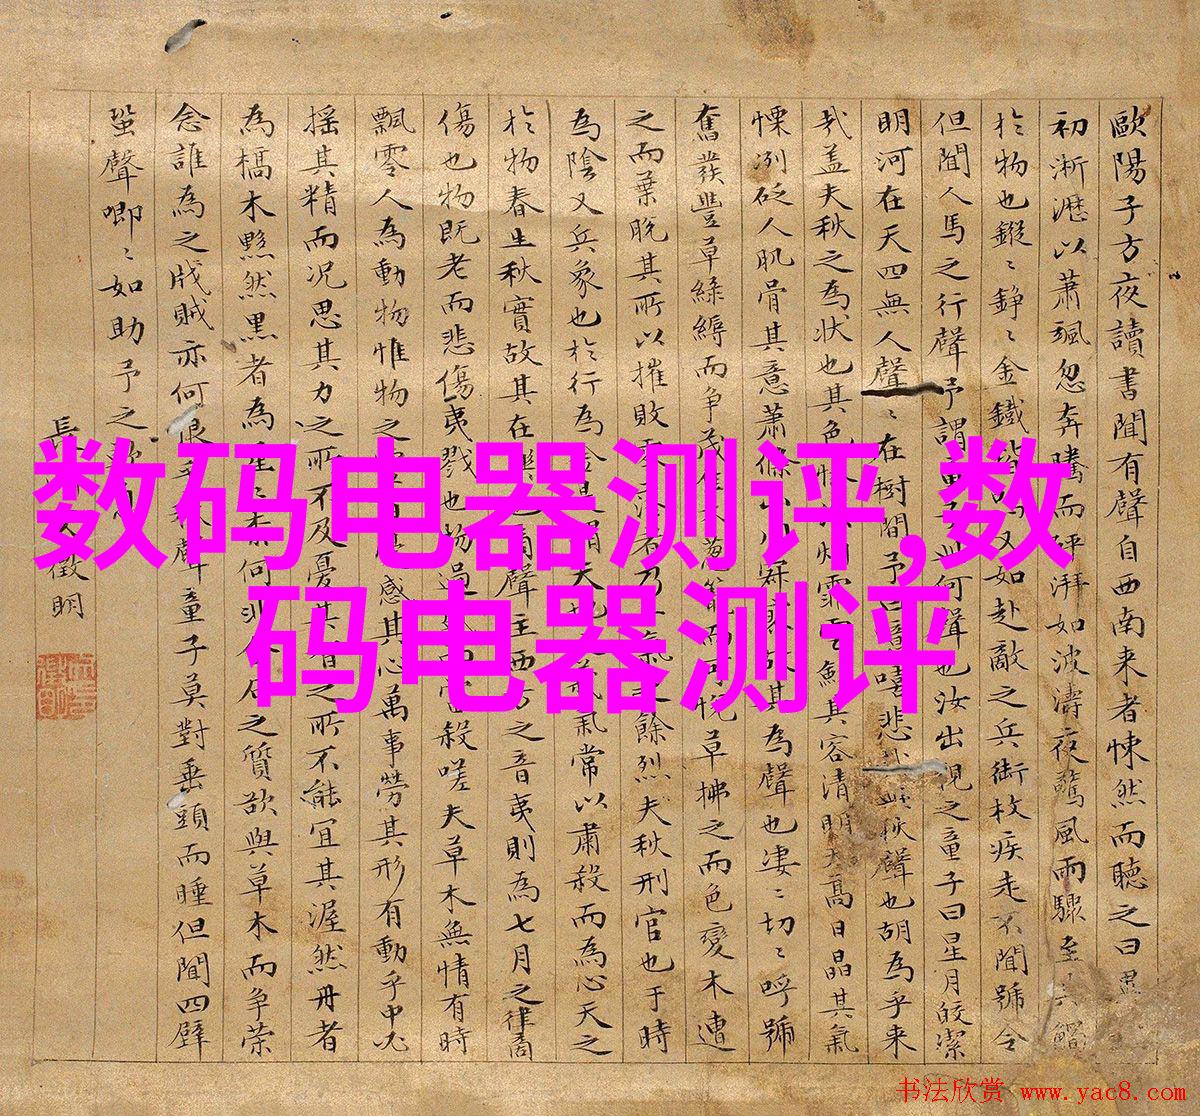 歐陽子方夜讀書聞有聲自西南来者悚然而聽之曰異
初淅瀝以蕭颯忽奔騰而砰湃如波濤夜驚風雨驟至其觸
於物也鏦〻錚〻金鐵皆鳴又如赴敵之兵銜枚疾走不聞號令
但聞人馬之行聲予謂童子此何聲也汝出視之童子曰星月皎潔
明河在天四無人聲〻在樹間予曰噫嘻悲哉此秋聲也胡為乎来
哉盖夫秋之為状也其色惨淡烟霏雲斂其容清明天高日晶其氣
慄冽砭人肌骨其意蕭條山川寂寥故其為聲也凄〻切〻呼號
奮發豐草綠縟而争茂佳木葱蘢而可悅草拂之而色變木遭
之而葉脫其所以摧敗零落者乃一氣之餘烈夫秋刑官也于時
為陰又兵象也於行為金是謂天地之義氣常以肅殺而為心天之
於物春生秋實故其在樂也商聲主西方之音夷則為七月之律商
傷也物既老而悲傷夷戮也物過盛而當殺嗟夫草木無情有時
飄零人為動物惟物之靈百憂感其心萬事勞其形有動乎中必
摇其精而况思其力之所不及憂其智之所不能宜其渥然丹者
為槁木黟然黒者為星〻奈何非金石之質欲與草木而争榮
念誰為之戕賊亦何恨乎秋聲童子莫對垂頭而睡但聞四壁
蛩聲唧〻如助予之歎息
長洲文徵明
数码电器测评,数
码电器测评
书法欣赏 www.yac8.com